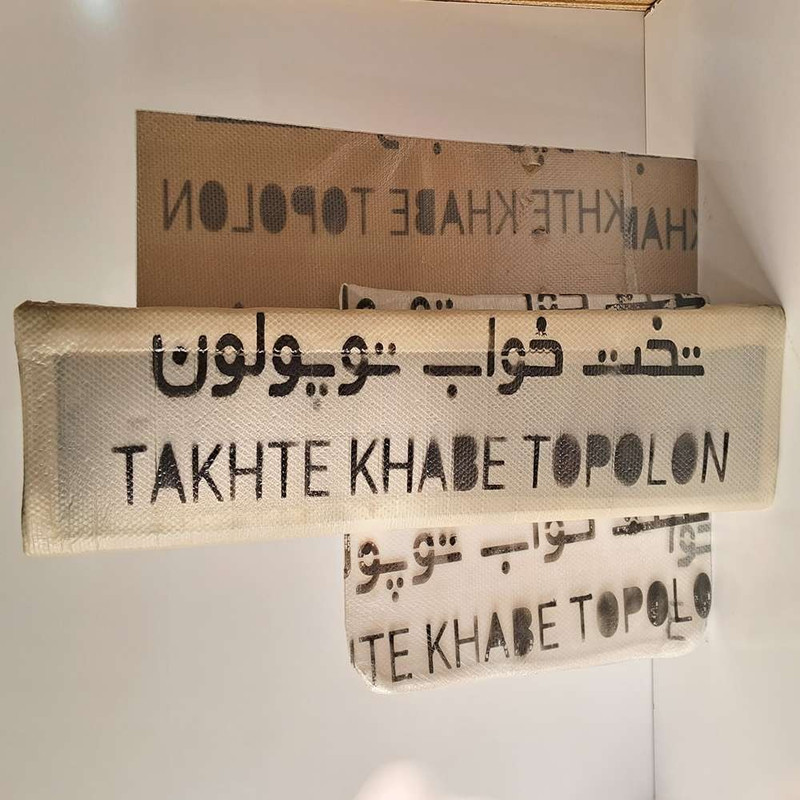 KHABE TAKHTE KHABE TOPOLON
تخت خواب توپولون
TAKHTE KHABE TOPOLON
تخت خواب توپولو
TE KHABE TOPOLO